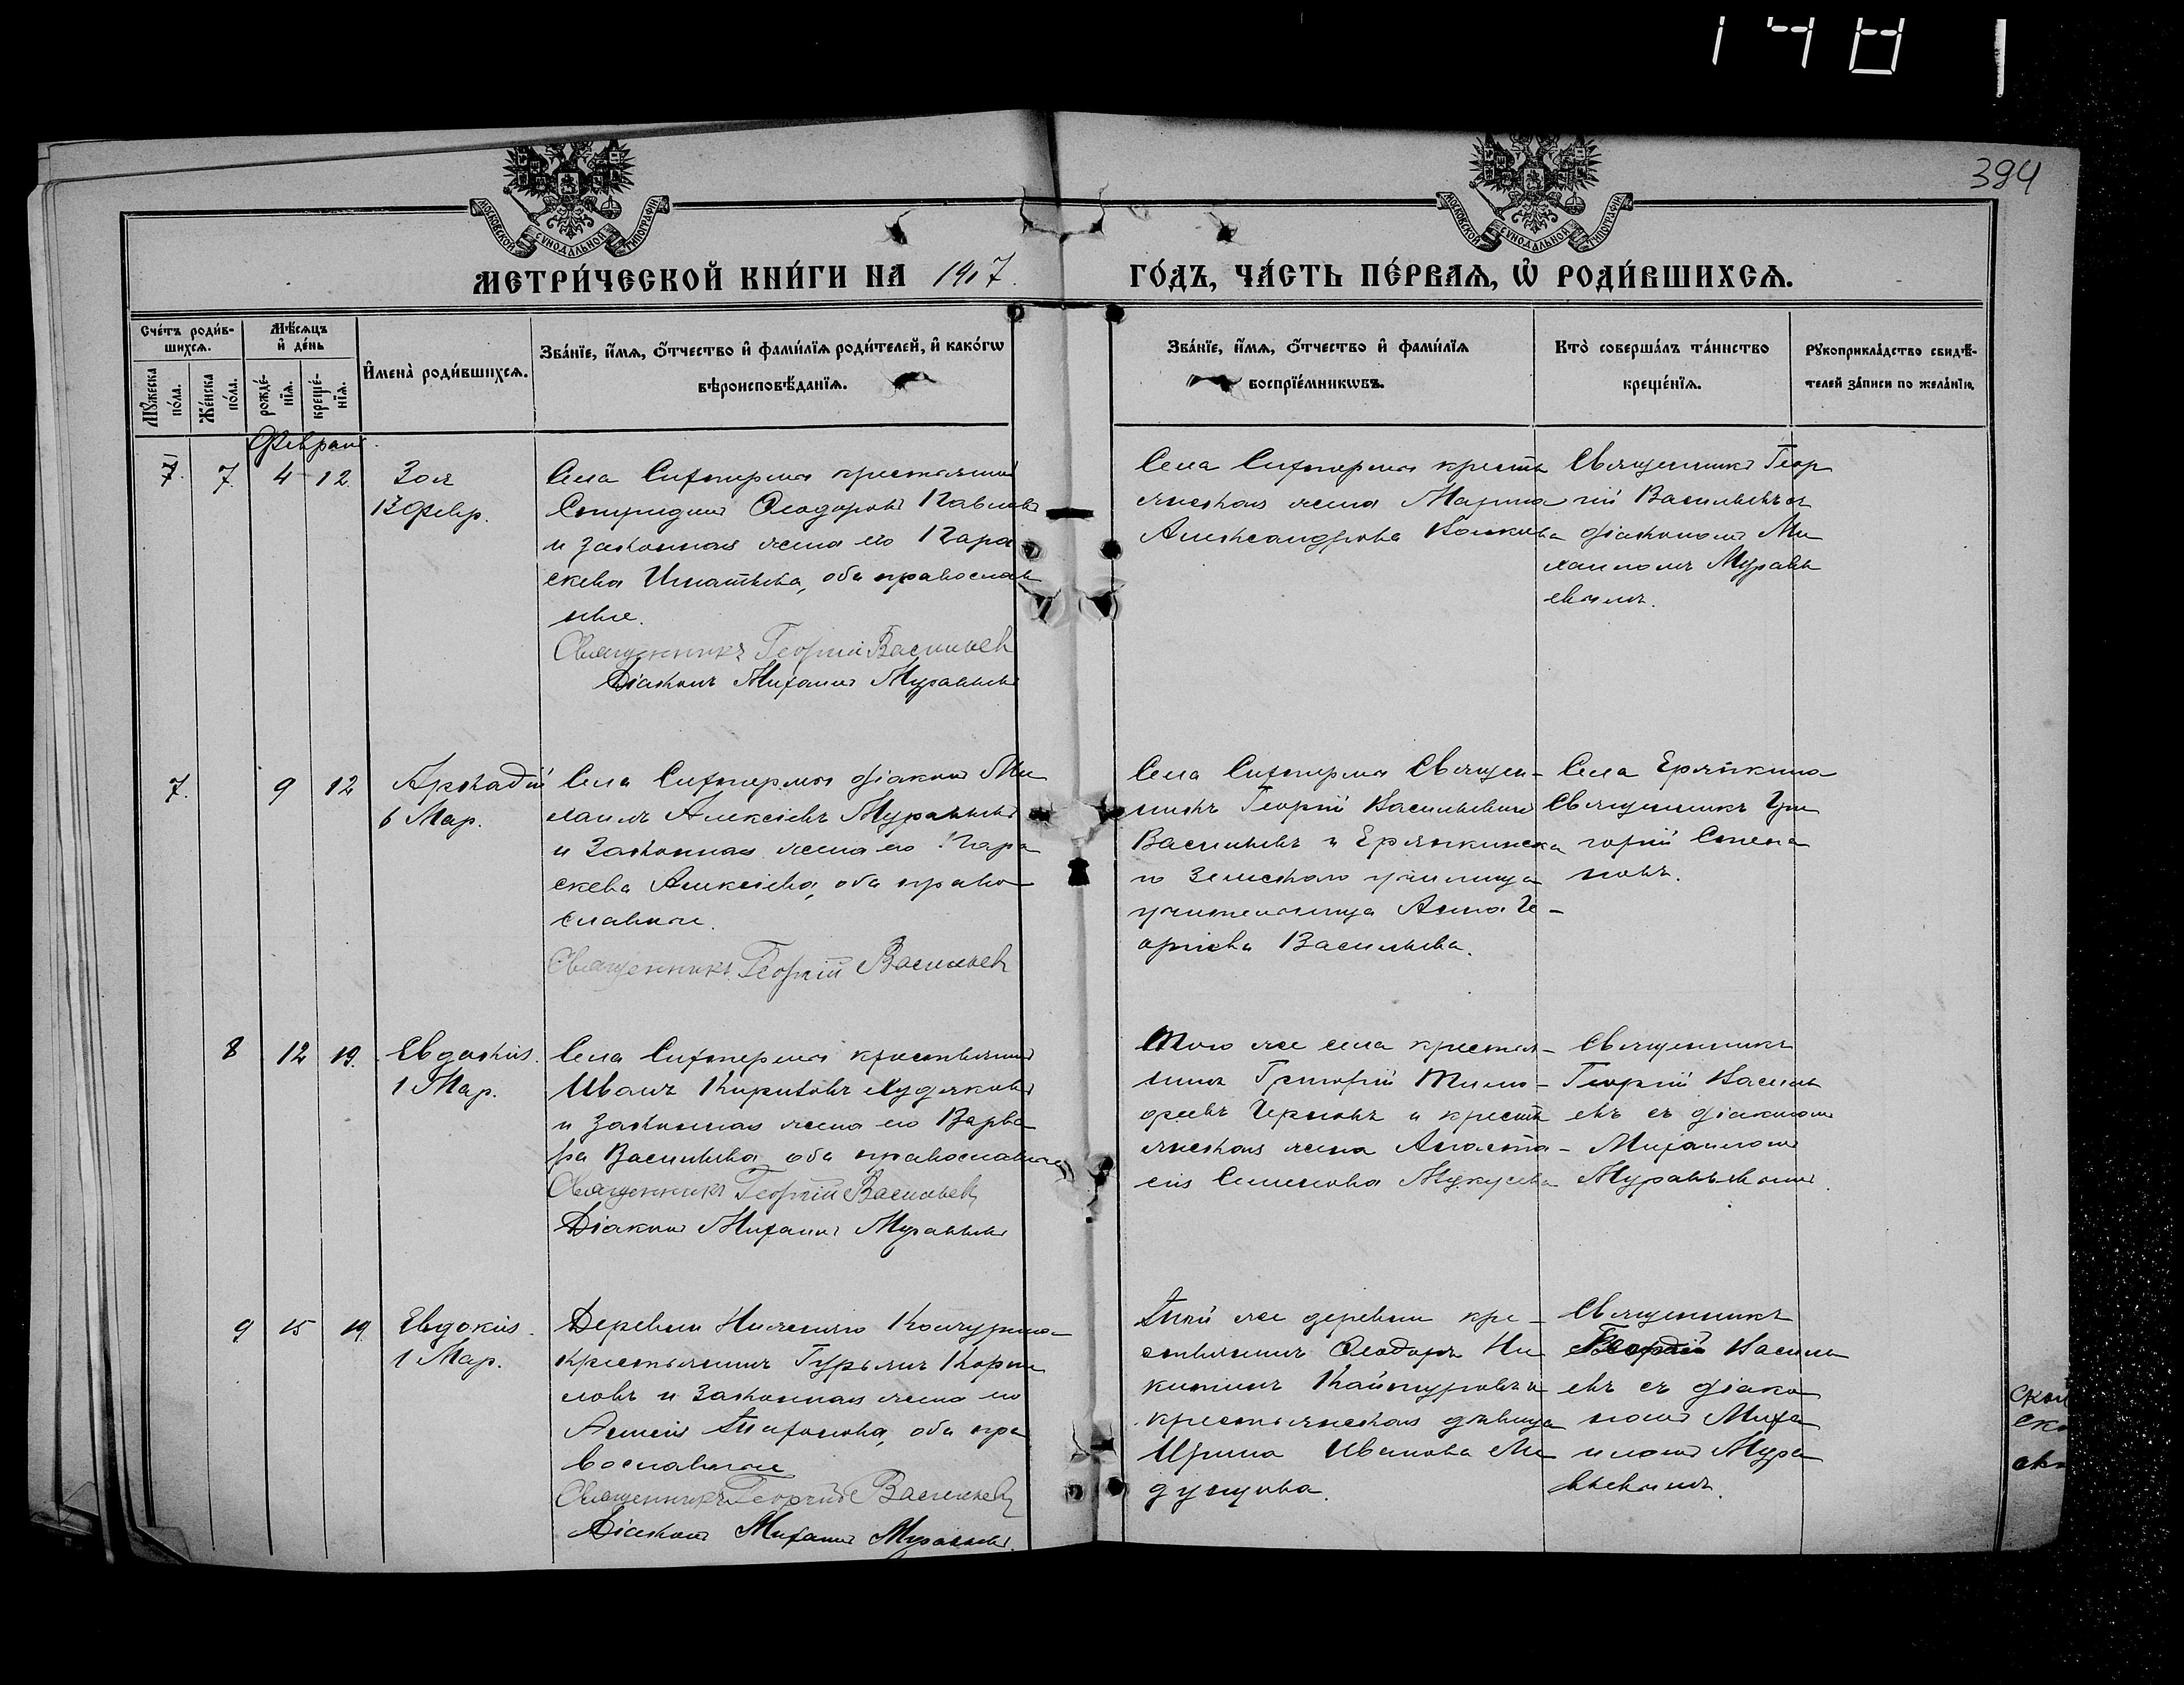 1481
394
МОСКОВСКОЙ СѴНОДАЛЬНОЙ ТИПОГРАФІИ
МОСКОВСКОЙ СѴНОДАЛЬНОЙ ТИПОГРАФІИ
МЕТРИ́ЧЕСКОЙ КНИ́ГИ НА 1917.
ГО́ДЪ, ЧА́СТЬ ПЕ́РВАѦ, Ѡ҆ РОДИ́ВШИХСѦ.
Сче́тъ роди́в-
шихсѧ.
Мꙋ́жеска по́ла.
Же́нска по́ла.
Мѣ́сѧцъ
и҆ де́нь
рожде́-
нїѧ.
креще́-
нїѧ.
И҆мена̀ роди́вшихсѧ.
Зва́нїе, и҆́мѧ, ѻ҆́тчество и҆ фами́лїѧ роди́телей, и҆ како́гѡ
вѣроисповѣ́данїѧ.
Зва́нїе, и҆́мѧ, ѻ҆́тчество и҆ фами́лїѧ
воспрїе́мникѡвъ.
Кто̀ соверша́лъ та́инство
креще́нїѧ.
Рꙋкоприкла́дство свидѣ́-
телей за́писи по жела́нїю.
Февраль
7. 7. 4 12. Зоя
13 Февр.
Села Ситнерма крестьянинъ
Спиридонъ Ѳеодоровъ Павловъ
и законная жена его Пара
скева Игнатьева, оба православ
ные.
Священникъ Георгій Васильевъ
Діаконъ Михаилъ Муравьевъ
Села Ситнерма кресть
янская жена Марина
Александрова
Священникъ Геор
гій Васильевъ съ
діакономъ Ми
хаиломъ Муравь
евымъ.
7. 9 12 Аркадій
6 Мар.
Села Ситнерма діаконъ Ми
хаилъ Алексіевъ Муравьевъ
и законная жена его Пара
скева Алексіева, оба право
славные.
Священникъ Георгій Васильевъ
Села Ситнерма Священ-
никъ Георгій Васильевичъ
Васильевъ и Ерыкинска
го Земскаго училища
учительница Анна Ге-
оргіева Васильева.
Села Ерыкина
Священникъ Гри
горій Степа
новъ.
8 12 19. Евдокія.
1 Мар.
Села Ситнерма крестьянинъ
Иванъ Худяковъ
и законная жена его Варва
ра Васильева, оба православные
Священникъ Георгій Васильевъ
Діаконъ Михаилъ Муравьевъ
Того же села крестья-
нинъ Григорій Тимо-
феевъ Черновъ и кресть
янская жена Анаста-
сія Семенова
Священникъ
Георгій Василь
евъ съ діакономъ
Михаиломъ
Муравьевымъ.
9 15 19. Евдокія.
1 Мар.
Деревни Нижняго
крестьянинъ Гурьянъ Корни
ловъ и законная жена его
оба пра
вославные
Священникъ Георгій Васильевъ
Діаконъ Михаилъ Муравьевъ.
Той же деревни кре-
стьянинъ Ѳеодоръ Ни
китинъ и
крестьянская дѣвица
Ирина Иванова
Священникъ
Георгій Василь
евъ съ діако
номъ Миха
иломъ Мура
вьевымъ.